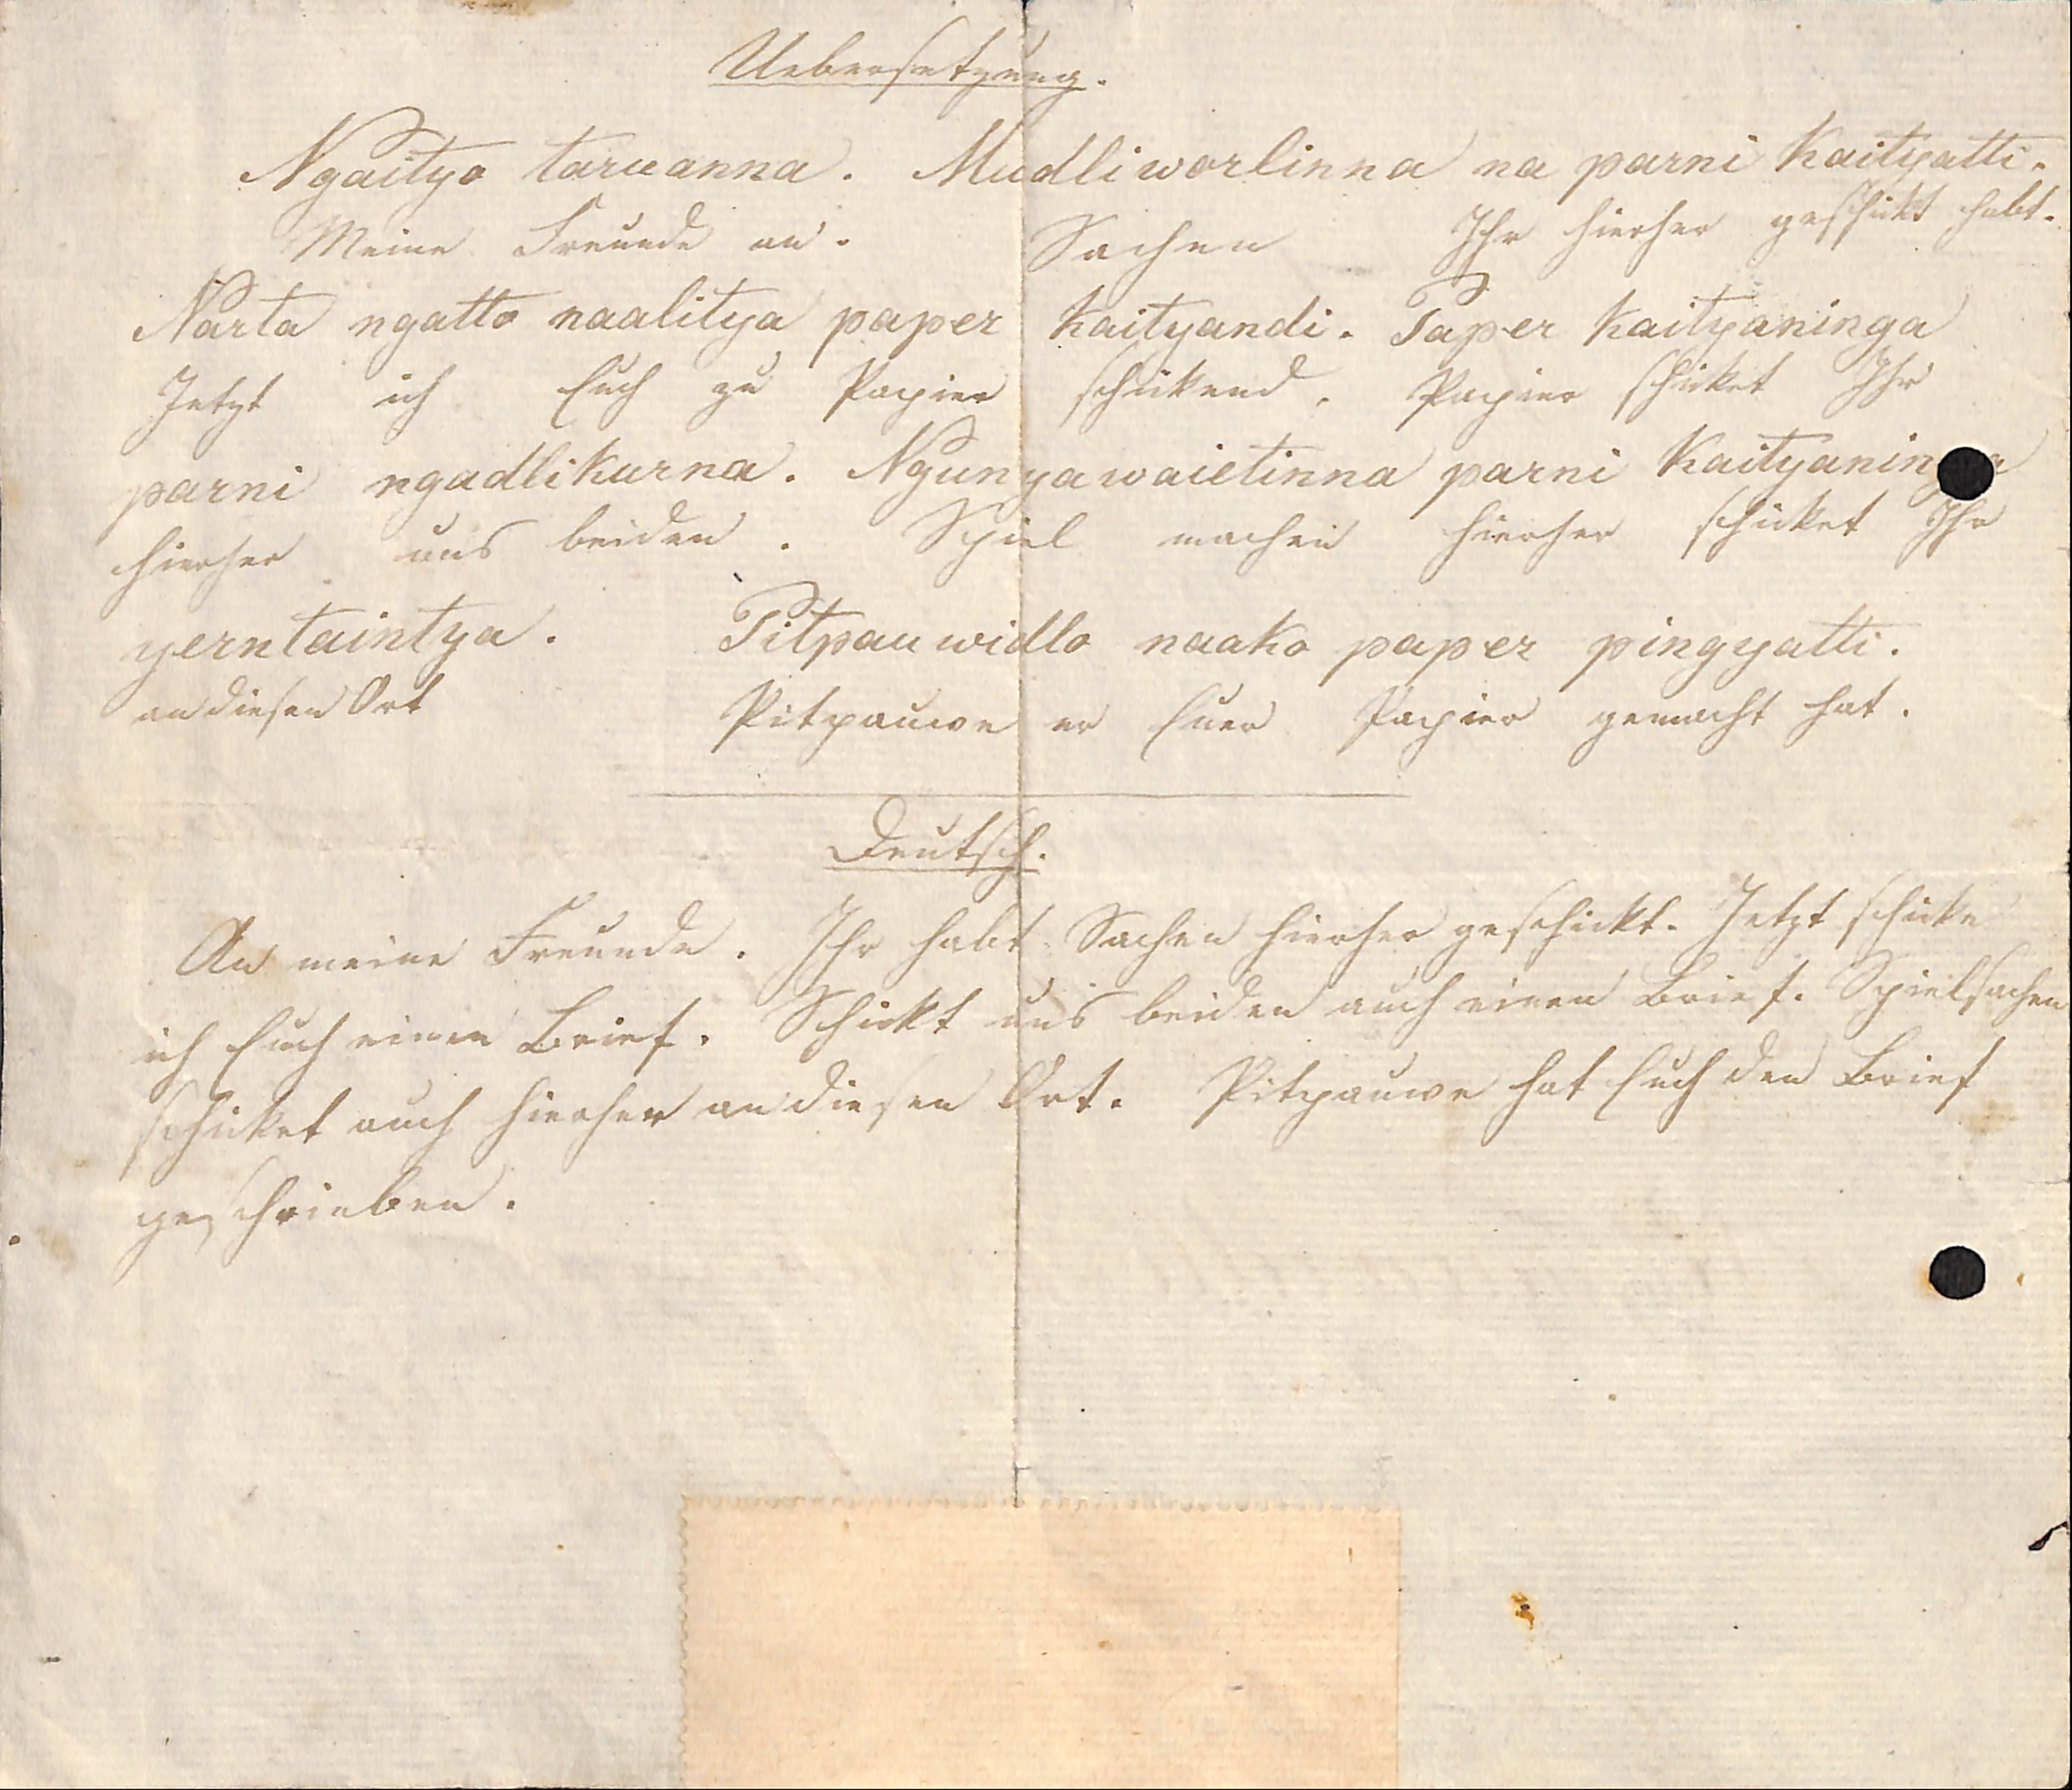 Uebersetzung.
Ngaityo taruanna. Mudliworlinna na parni kaityatti.
Meine Freunde an. Sachen Ihr hierher geschikt habt.
Narta ngatto naalitya paper kaityandi. Paper kaityaninga
Jetzt ich Euch zu Papier schikend. Papier schicket Ihr
parni ngadlikurna. Ngunyawaietinna parni kaityaninga
hierher uns beiden. Spiel machen hierher schicket Ihr
yerntaintya. Pitpauwidlo naako paper pingyatti.
an diesen Ort Pitpauwe er Euer Papier gemacht hat.
Deutsch.
An meine Freunde. Ihr habt Sachen hierher geschickt. Jetzt schicke
ich Euch einen Brief. Schickt uns beiden auch einen Brief. Spielsachen
schicket auch hierher an diesen Ort. Pitpauwe hat Euch den Brief
geschrieben.